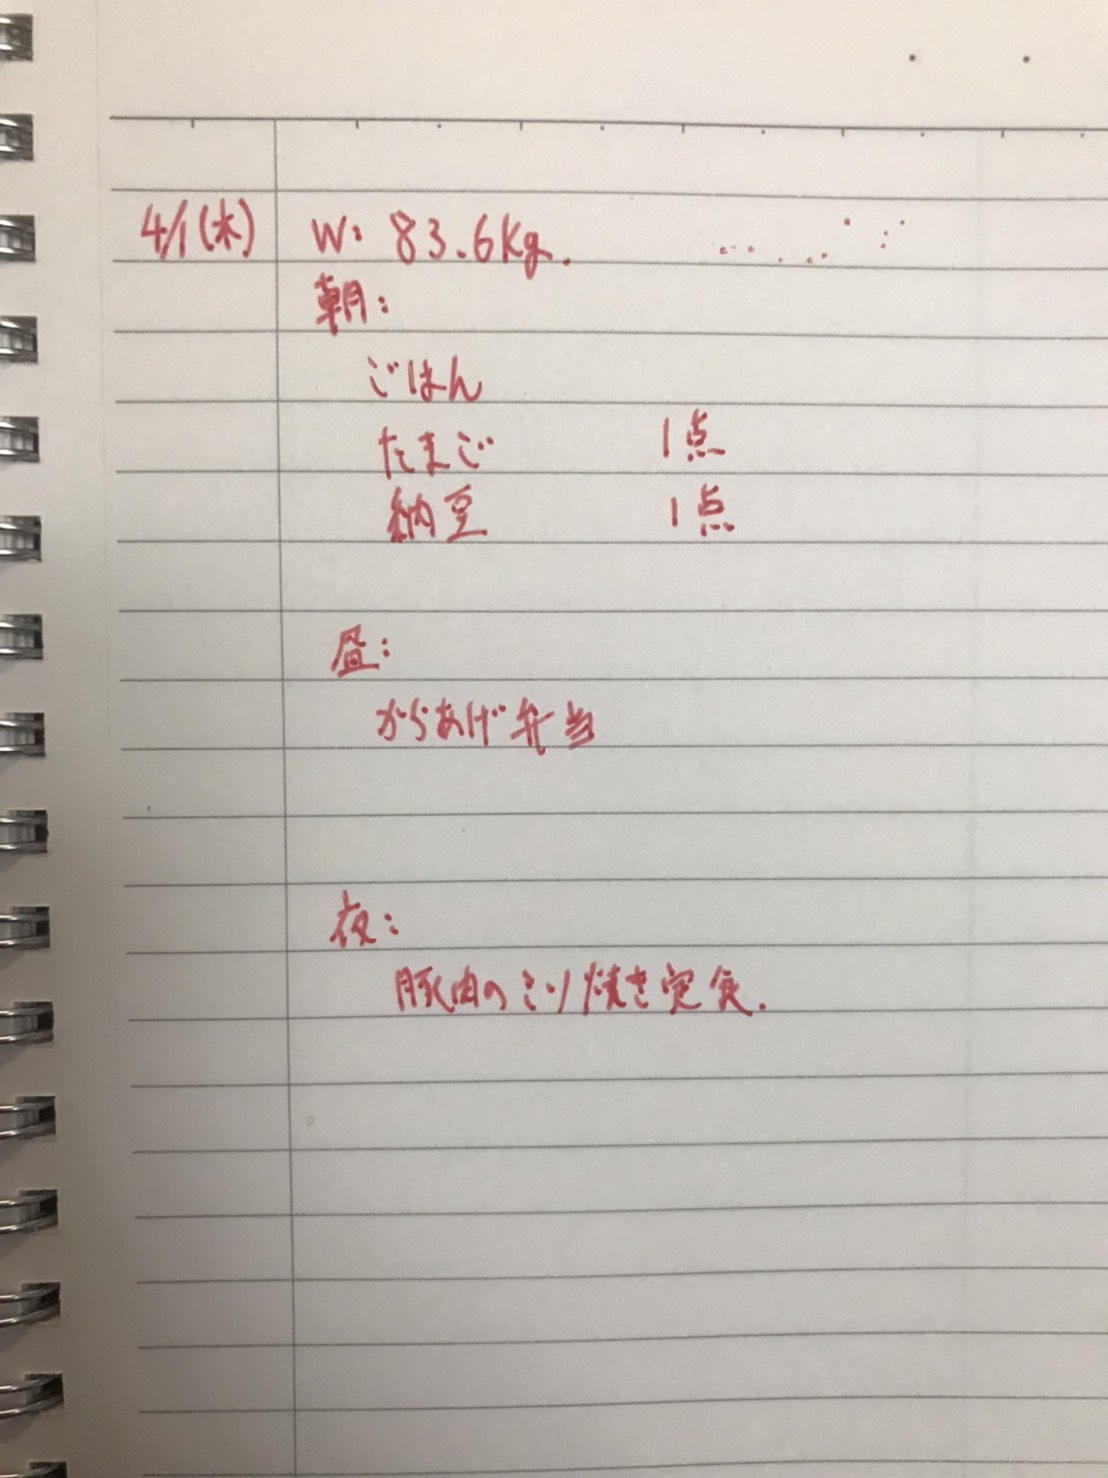 4/1(木) W: 83.6Kg.
朝:
ごはん
たまご 1点
納豆 1点
昼:
からあげ弁当
夜:
豚肉のみそ焼き定食.